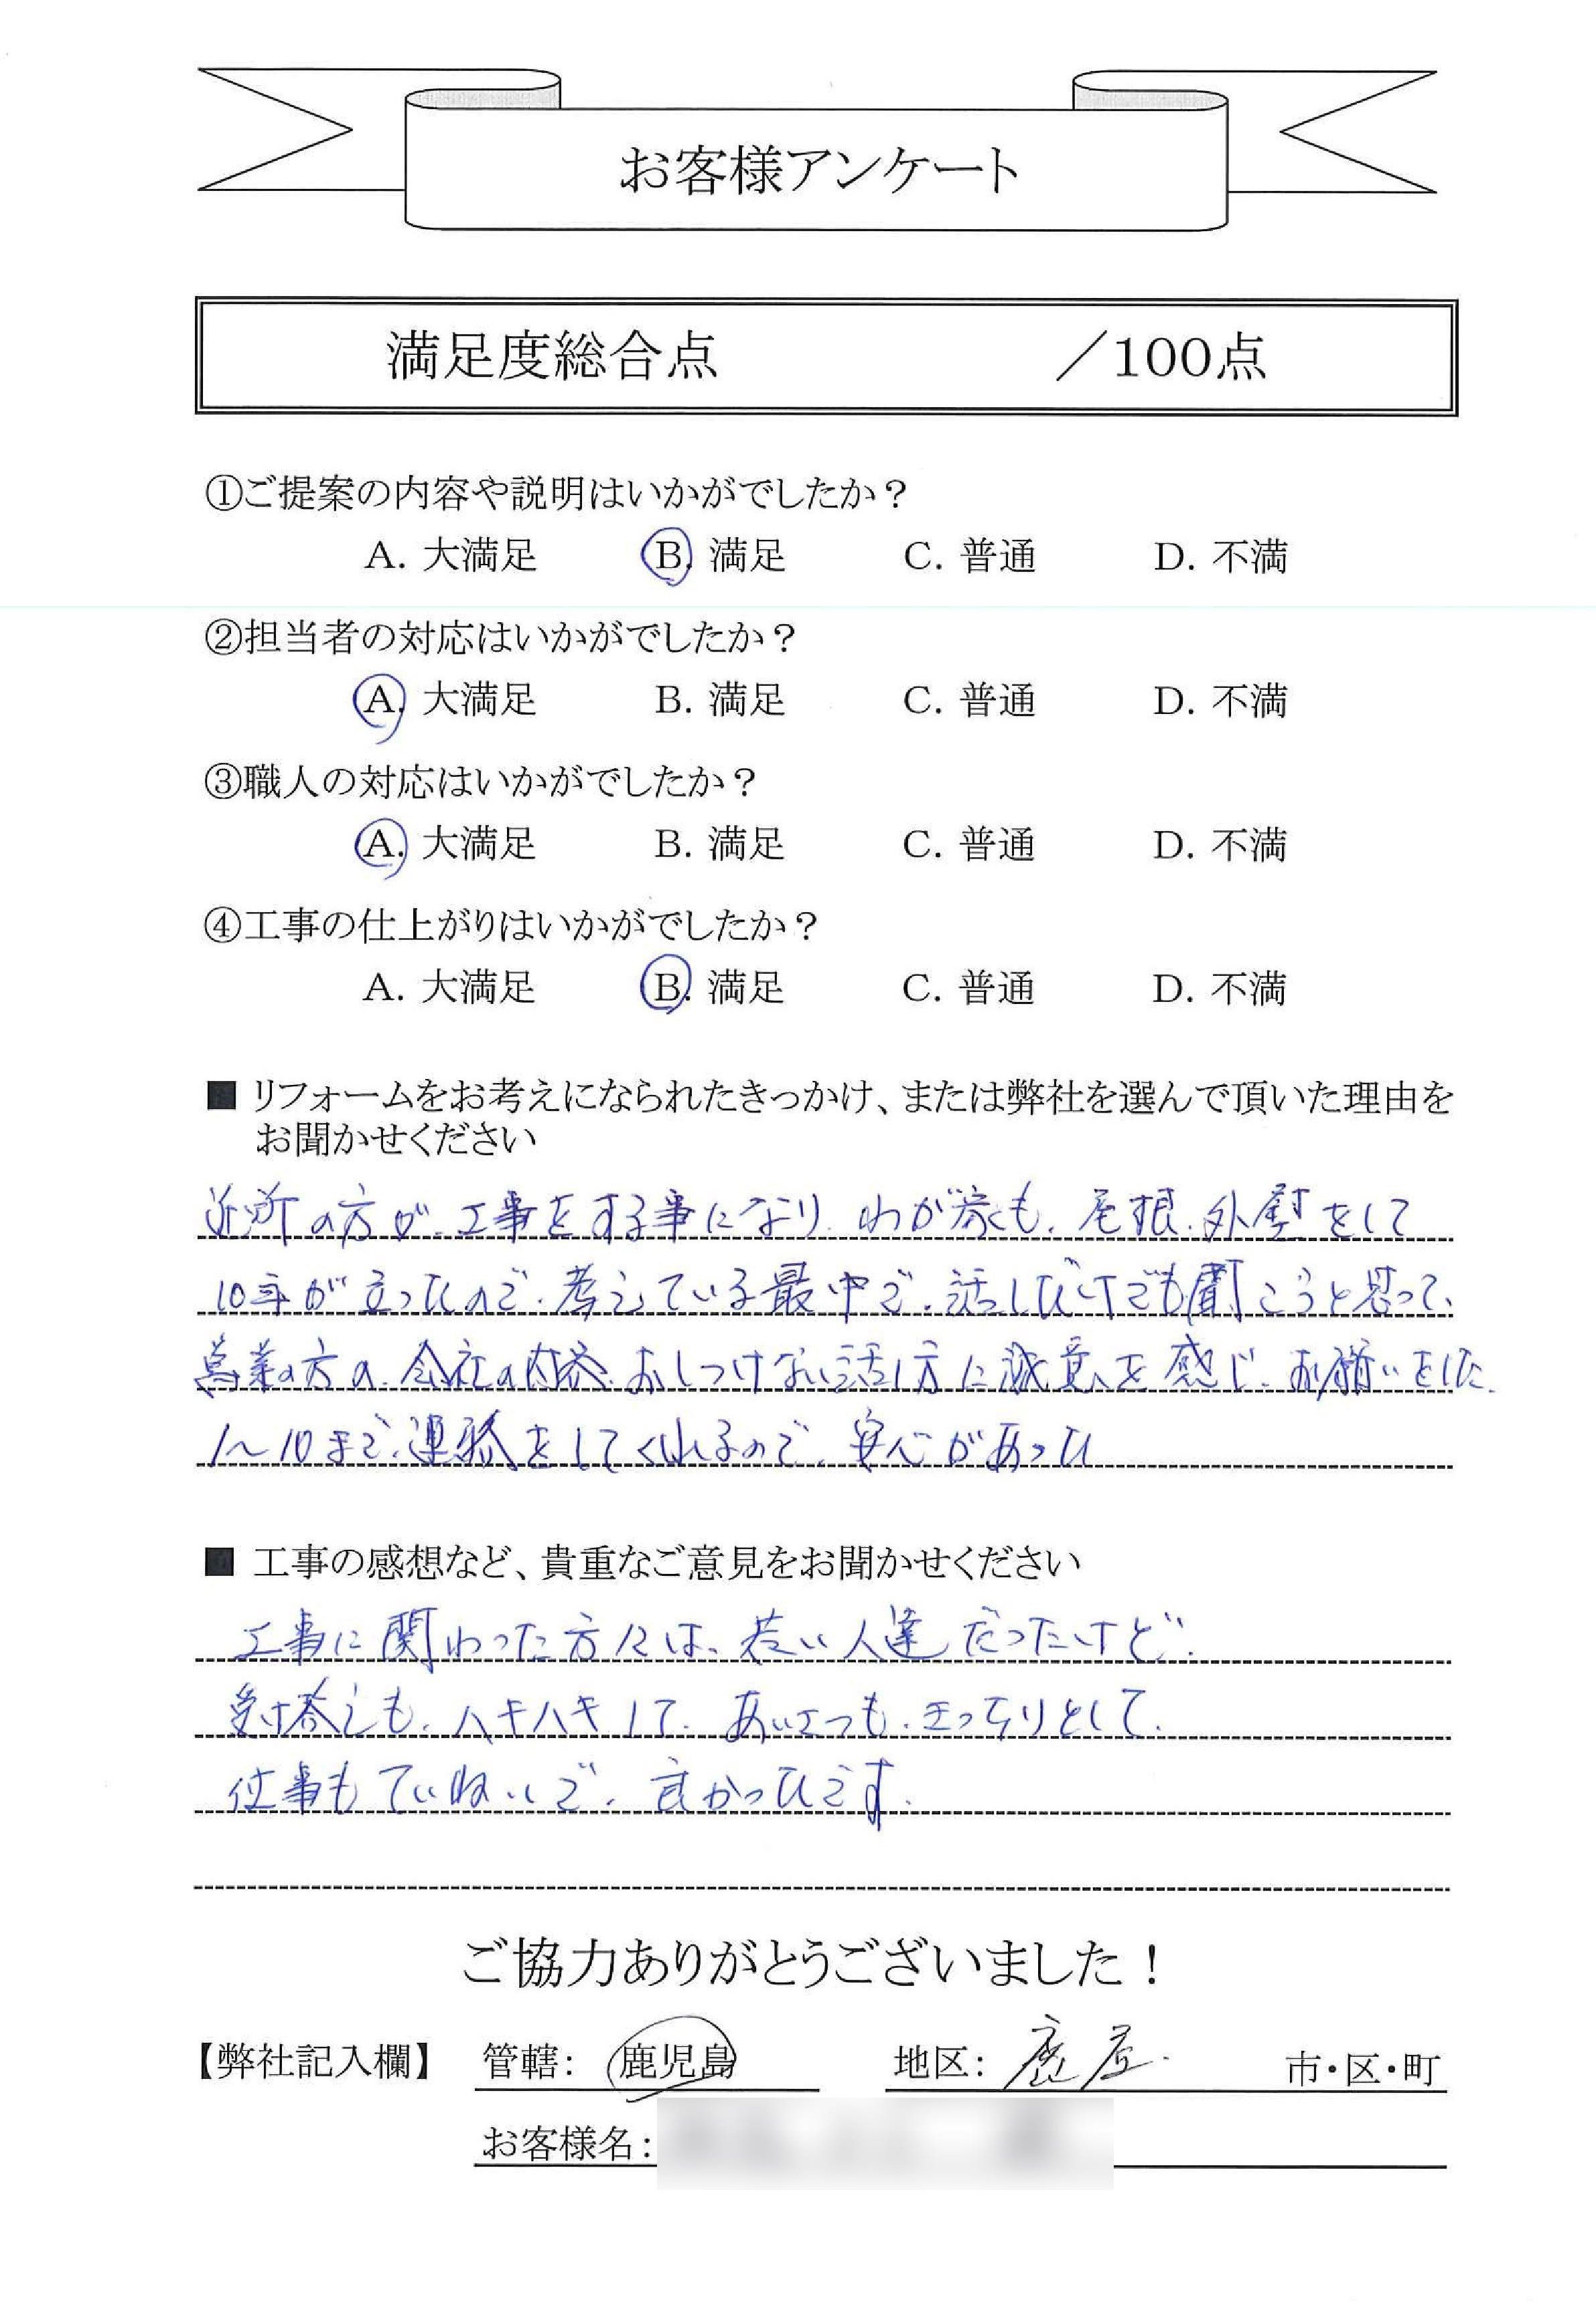 お客様アンケート
満足度総合点 ／100点
①ご提案の内容や説明はいかがでしたか？
A. 大満足 B. 満足 C. 普通 D. 不満
②担当者の対応はいかがでしたか？
A. 大満足 B. 満足 C. 普通 D. 不満
③職人の対応はいかがでしたか？
A. 大満足 B. 満足 C. 普通 D. 不満
④工事の仕上がりはいかがでしたか？
A. 大満足 B. 満足 C. 普通 D. 不満
■ リフォームをお考えになられたきっかけ、または弊社を選んで頂いた理由を
お聞かせください
近所の方が、工事をする事になり、わが家も、屋根、外壁をして
10年が立ったので、考えている最中で、話しだけでも聞こうと思って、
営業の方の、会社の内容、おしつけない話し方に誠意を感じ、お願いをした。
1〜10まで、連絡をしてくれるので、安心があった
■ 工事の感想など、貴重なご意見をお聞かせください
工事に関わった方々は、若い人達だったけど、
受け答えも、ハキハキして、あいさつも、きっちりとして、
仕事もていねいで、良かったです。
ご協力ありがとうございました！
【弊社記入欄】 管轄： 鹿児島 地区： 鹿屋 市・区・町
お客様名：